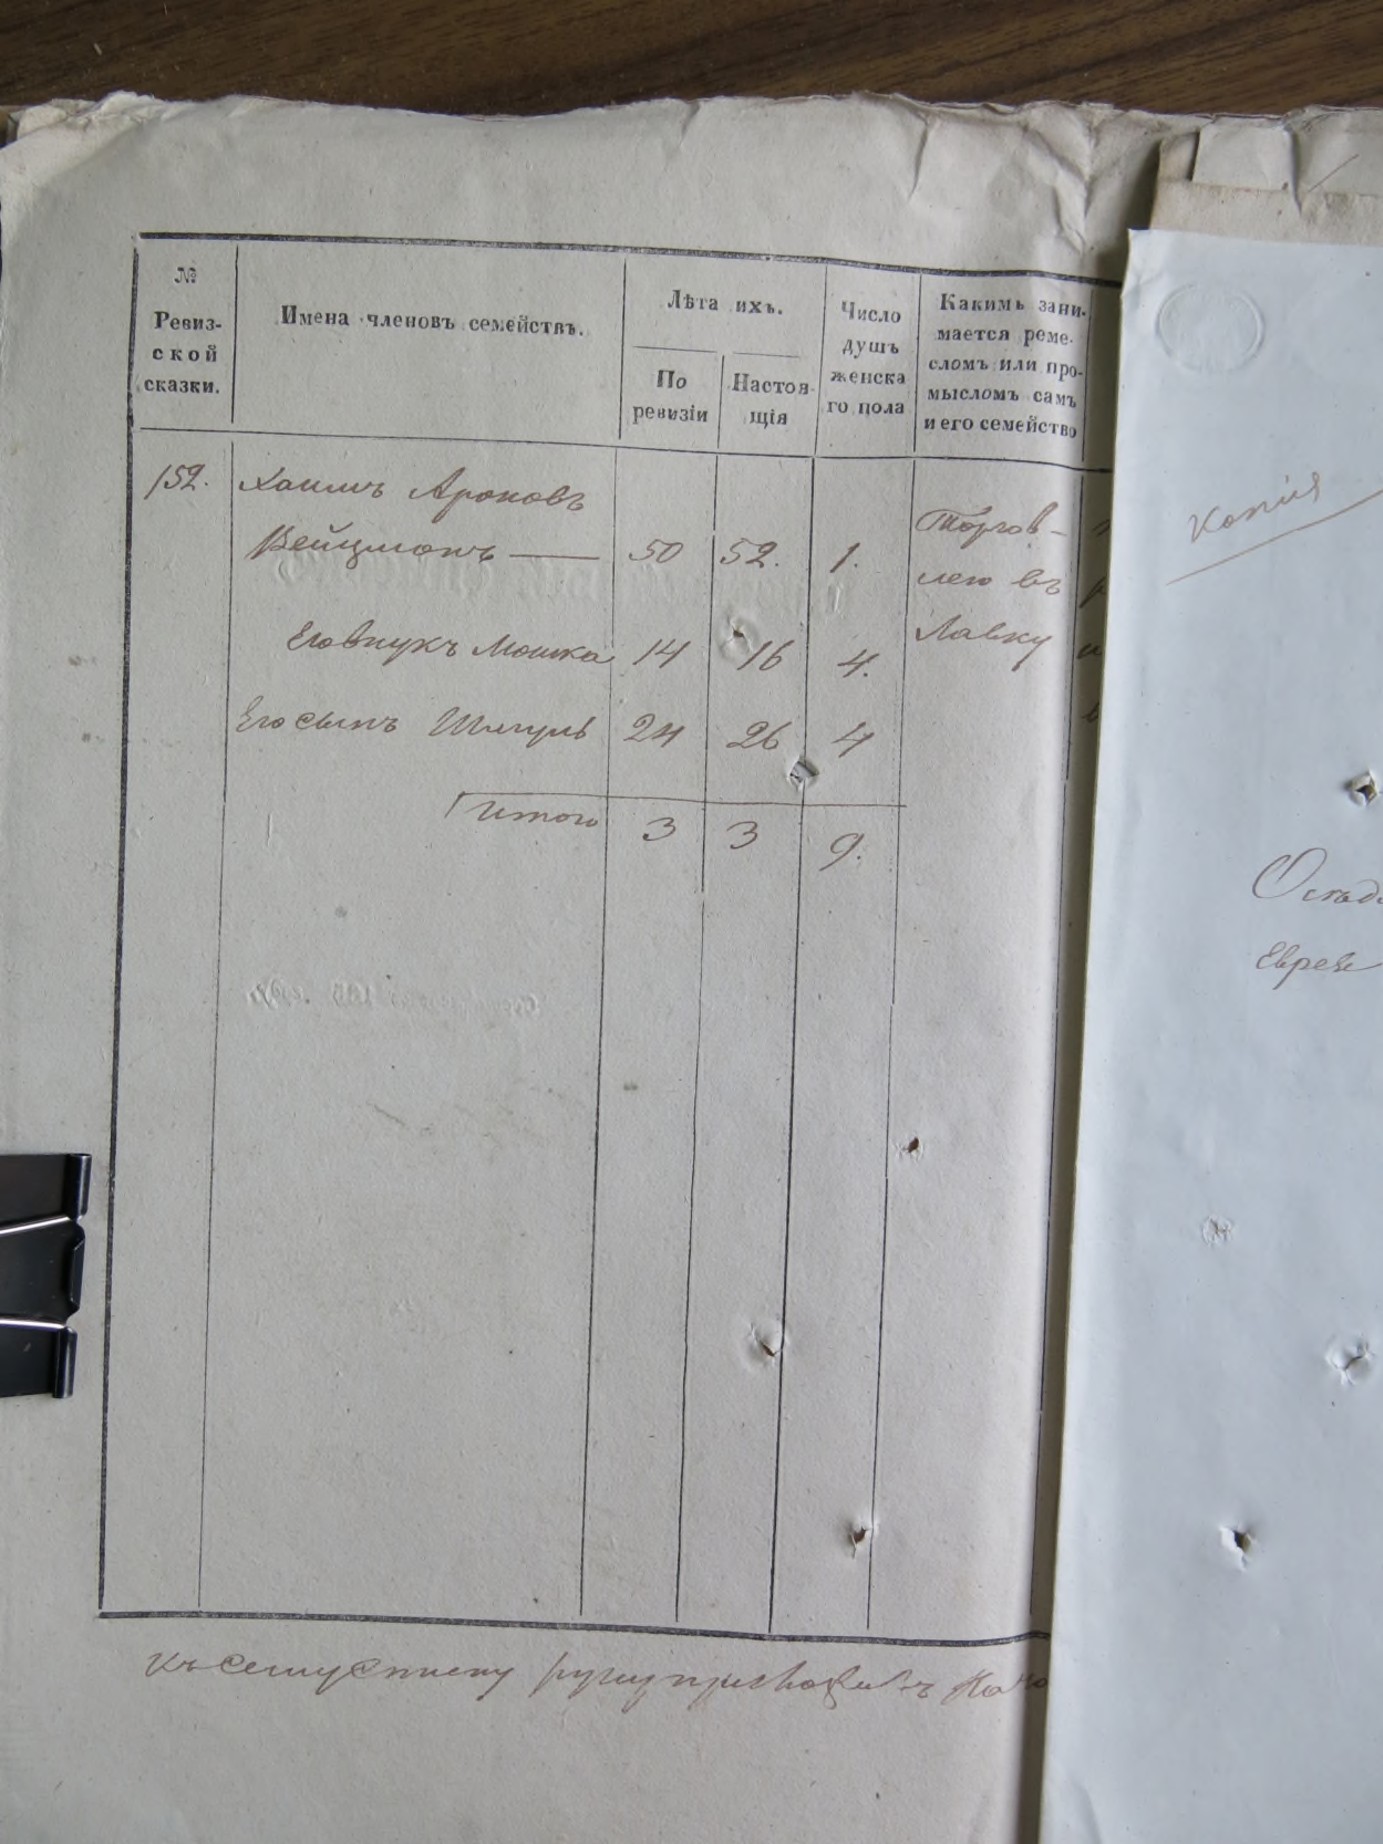 №
Ревиз-
ской
сказки.
Имена членовъ семействъ.
Лѣта ихъ.
По
ревизіи
Настоя-
щія
Число
душъ
женска
го пола
Какимъ зани-
мается реме-
сломъ или про-
мысломъ самъ
и его семейство
152. Хаимъ Ароновъ
Вейцманъ — 50 52. 1.
Торгов-
лею въ
Лавку
Его внукъ Мошка 14 16 4.
Его сынъ Шмуль 24 26 4
Итого 3 3 9.
Къ сему списку руку приложилъ
Копія
Осѣд
Евреи